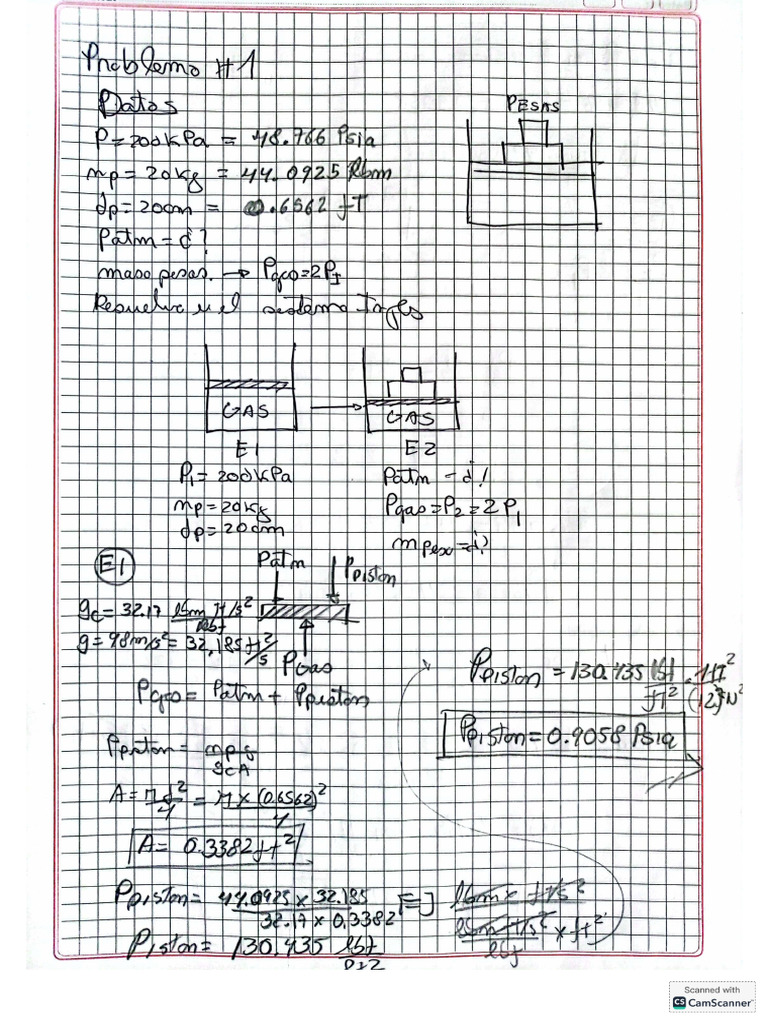 Problema #1
Datos
PESAS
P=200kPa = 48.766 Psia
mp=20kg = 44.0925 lbm
dp=20cm = 0.6562 ft
Patm=¿?
masa pesas. → Pgas=2P1
Resuelva u el sistema Ingles
GAS → GAS
E1 E2
P1=200kPa
mp=20kg
dp=20cm
Patm=¿?
Pgas=P2=2P1
mpesa=¿?
E1
Patm Ppiston
gc=32.17 lbm ft/s²/lbf
g=98m/s²=32,185ft²/s
PGas
Pgas=Patm+Ppiston
Ppiston=mp g/gcA
A=πd²/4=π×(0.6562)²/4
A= 0.3382ft²
Ppiston=44.0925×32.185/32.17×0.3382 [=] lbm×ft/s²/lbm ft/s²/lbf×ft²
Piston= 130.435 lbf/ft2
Ppiston=130.435 lbf/ft²·1ft²/(12)²IN²
Ppiston=0.9058 Psia
Scanned with
CS CamScanner